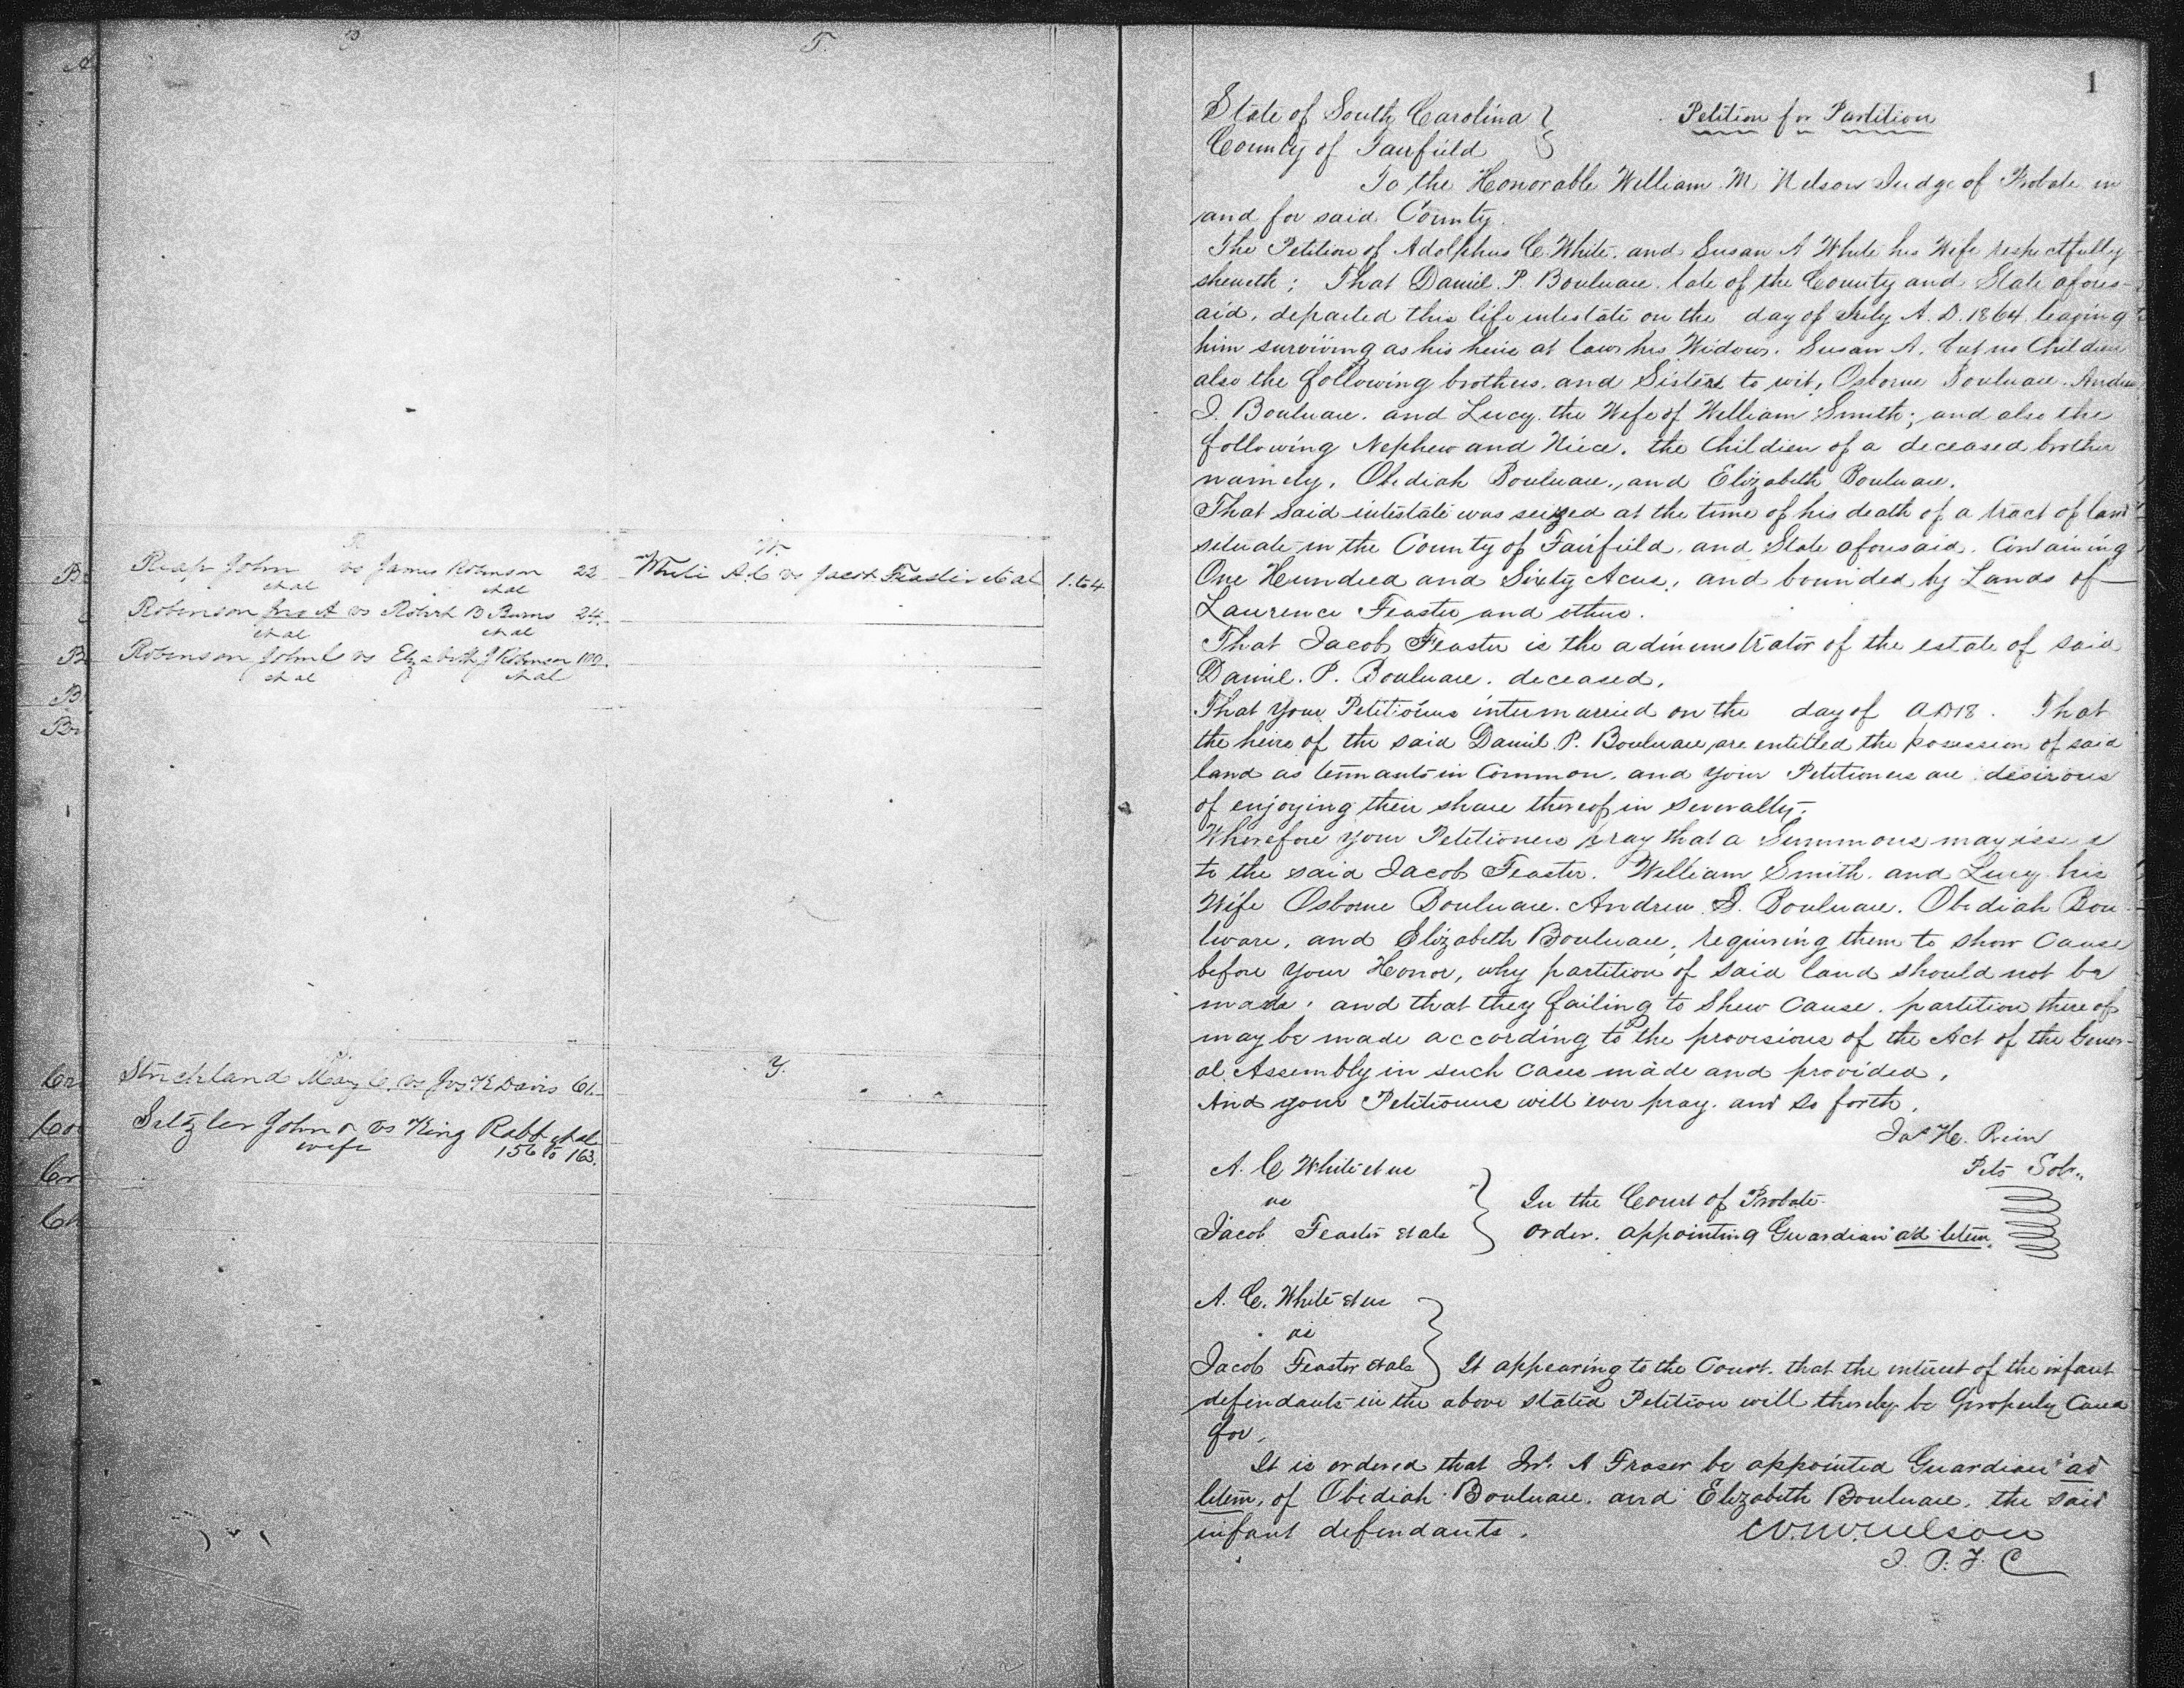 P.
T.
R
Reap John vs James Robinson 22
et al et al
Robinson Jno A vs Robert B Burns 24
et al et al
Robinson John C vs Elizabeth J Robinson 100
et al et al
W.
White A. C vs Jacob Feaster et al 1. to 4
Strickland May C. vs Jos K Davis 61
Setzler John & vs King Rabb et al
wife 156 to 163.
Y.
1
State of South Carolina
Petition for Partition
County of Fairfield
To the Honorable William M. Nelson Judge of Probate in
and for said County.
The Petition of Adolphus C. White. and Susan A White his Wife respectfully
sheweth; That Daniel. P. Bouluare. late of the County and State afores-
aid, departed this life intestate on the day of July A. D. 1864 leaving
him surviving as his heirs at law his Widow. Susan A. but no Children
also the following brothers. and Sisters to wit, Osborne Bouluare. Andrew
J. Bouluare. and Lucy. the Wife of William Smith; and also the
following Nephew and Niece. the Children of a deceased brother
namely, Obediah Bouluare., and Elizabeth Bouluare.
That said intestate was seized at the time of his death of a tract of land
situate in the County of Fairfield, and State aforesaid. Containing
One Hundred and Sixty Acres, and bounded by Lands of
Laurence Feaster and others.
That Jacob Feaster is the adminustrator of the estate of said
Daniel. P. Bouluare. deceased.
That your Petitioners intermarried on the day of AD 18 . That
the heirs of the said Daniel. P. Bouluare, are entitled the posession of said
land as tennants in Common. and your Petitioners are desirous
of enjoying their share thereof in severalty.
Wherefore your Petitioners pray that a Summons may issue
to the said Jacob Feaster. William Smith. and Lucy his
Wife Osborne Bouluare. Andrew. J. Bouluare. Obediah Bou-
lware, and Elizabeth Bouluare, requiring them to show Cause
before your Honor, why partition of said land should not be
made; and that they failing to Shew Cause. partition thereof
may be made according to the provisions of the Act of the Gener-
al Assembly in such cases made and provided,
And your Petitioners will ever pray. and so forth.
Jas H. Rion
A. C White et ux
Pets Solr.
vs
In the Court of Probate
Jacob Feaster et als
order. appointing Guardian ad litem
A. C. White et ux
vs
Jacob Feaster et als It appearing to the Court. that the interest of the infant
defendants in the above stated Petition will thereby be properly Cared
for,
It is ordered that Jno. A Fraser be appointed Guardian ad
litem, of Obediah Bouluare. and Elizabeth Bouluare, the said
infant defendants.
W. M. Nelson
J. P. F. C